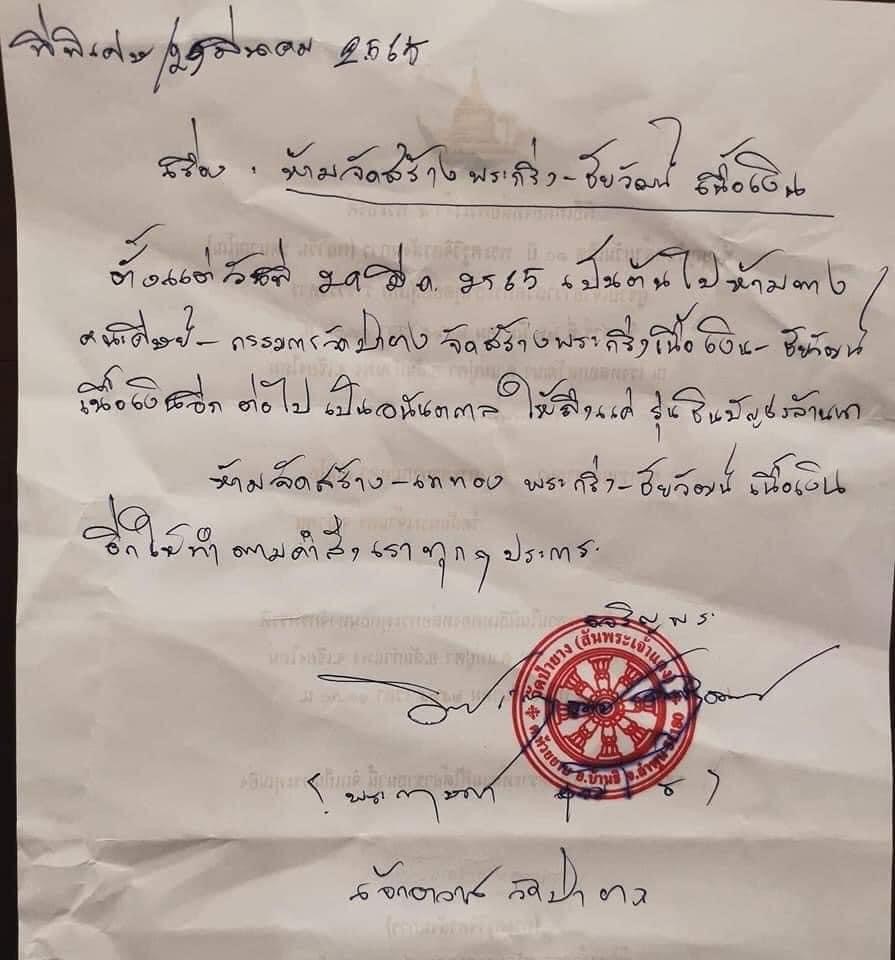 ที่พิเศษ/ มีนาคม ๒๕๖๕
เรื่อง : ห้ามจัดสร้างพระกริ่ง-ชัยวัฒน์ เนื้อเงิน
ตั้งแต่วันที่ มี.ค. ๒๕๖๕ เป็นต้นไป ห้ามทาง
คณะศิษย์ - กรรมการวัดป่ายาง จัดสร้างพระกริ่งเนื้อเงิน - ชัยวัฒน์
เนื้อเงินอีก ต่อไป เป็นอนันตกาล ให้สิ้นแค่ รุ่น ชินบัญชรล้านนา
ห้ามจัดสร้าง - เททอง พระกริ่ง - ชัยวัฒน์ เนื้อเงิน
อีก ให้ทำ ตามคำสั่งเราทุก ๆ ประการ
เจริญพร
วัดป่ายาง (สันพระเจ้าแดง)
ต.ห้วยยาบ อ.บ้านธิ จ.ลำพูน 51180
เจ้าอาวาส วัดป่ายาง